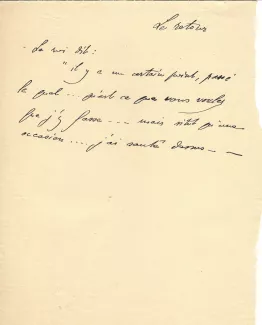 Le retour
- Le roi dit :
"il y a un certain point, passé
le quel ... qu'est ce que vous voulez
que j'y fasse ... mais sitôt qu'une
occasion ... j'ai sauté dessus —